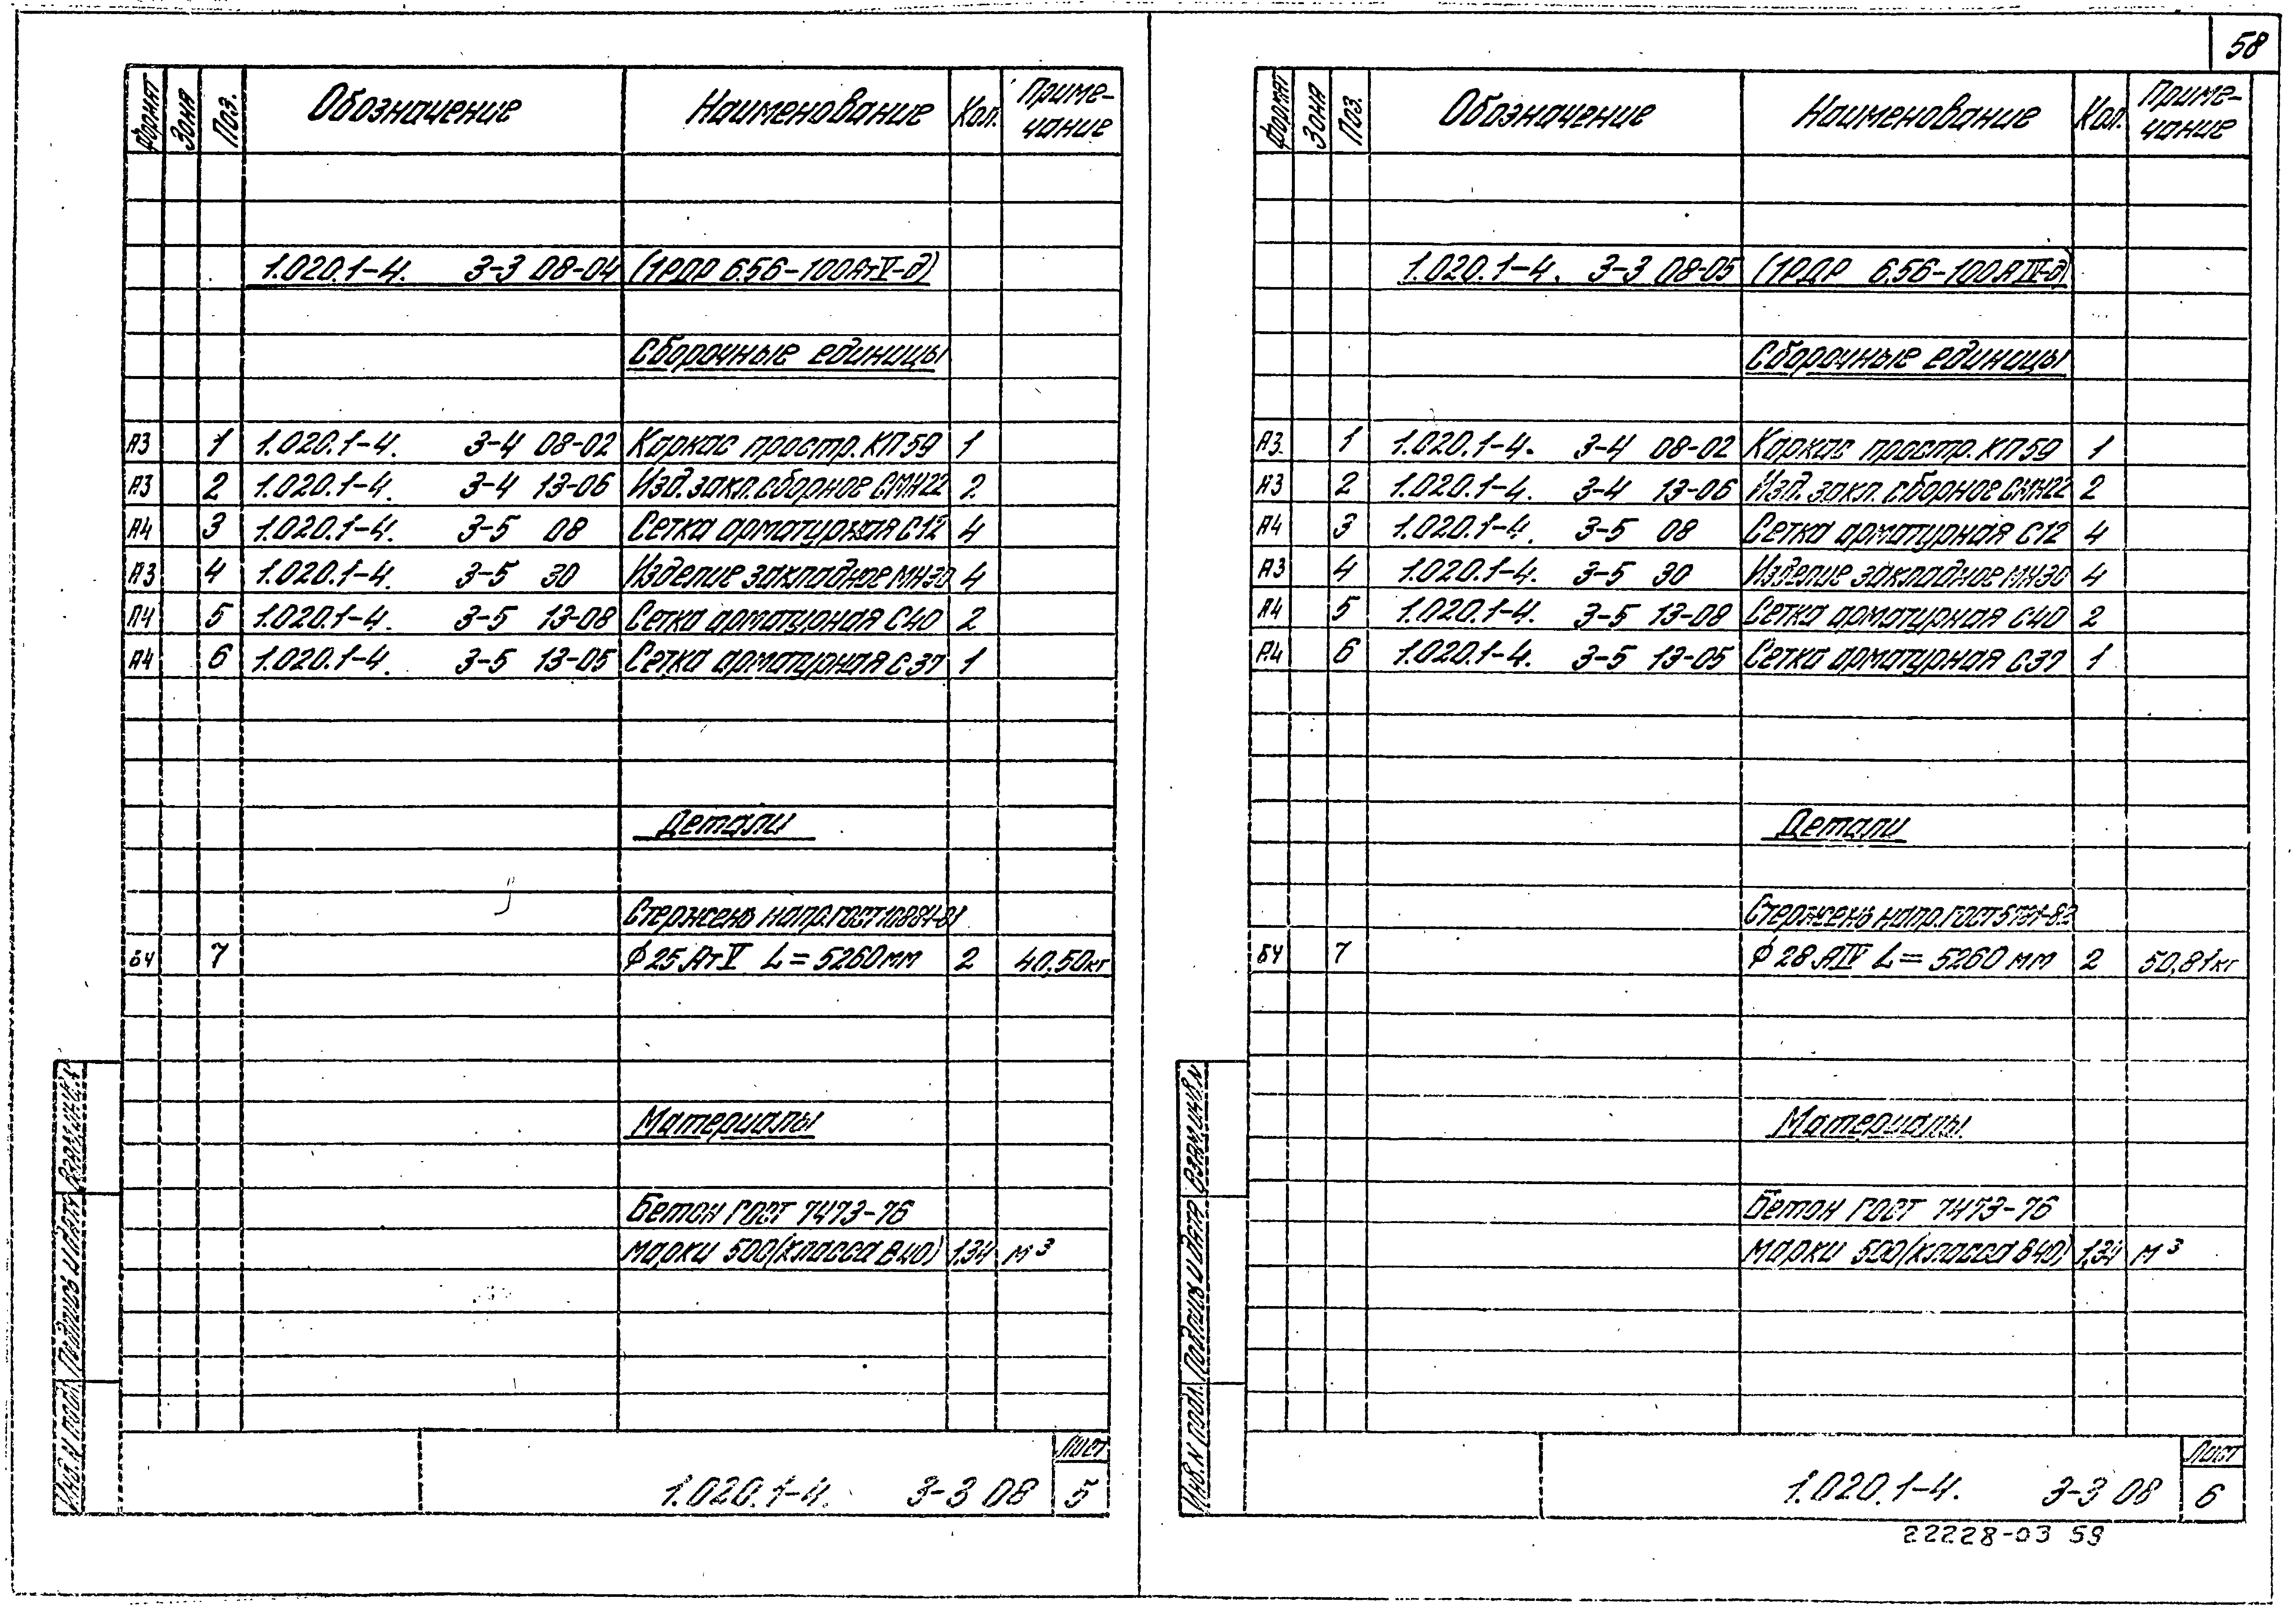 58
Формат Зона Поз. Обозначение Наименование Кол. Приме-
чание
1.020.1-4. 3-3 08-04 (1РДР 6.56-100АтV-д)
Сборочные единицы
А3 1 1.020.1-4. 3-4 08-02 Каркас простр. КП59 1
А3 2 1.020.1-4. 3-4 13-06 Изд. закл. сборное СМН22 2
А4 3 1.020.1-4. 3-5 08 Сетка арматурная С12 4
А3 4 1.020.1-4. 3-5 30 Изделие закладное МН30 4
А4 5 1.020.1-4. 3-5 13-08 Сетка арматурная С40 2
А4 6 1.020.1-4. 3-5 13-05 Сетка арматурная С37 1
Детали
Стержень напр. ГОСТ 10884-81
БЧ 7 ϕ25 АтV L=5260мм 2 40,50кг
Материалы
Бетон ГОСТ 7473-76
марки 500 (класса В40) 1,34 м³
Инв. N подл. Подпись и дата Взам. инв. N
1.020.1-4. 3-3 08 Лист 5
Формат Зона Поз. Обозначение Наименование Кол. Приме-
чание
1.020.1-4. 3-3 08-05 (1РДР 6.56-100АIV-д)
Сборочные единицы
А3 1 1.020.1-4. 3-4 08-02 Каркас простр. КП59 1
А3 2 1.020.1-4. 3-4 13-06 Изд. закл. сборное СМН22 2
А4 3 1.020.1-4. 3-5 08 Сетка арматурная С12 4
А3 4 1.020.1-4. 3-5 30 Изделие закладное МН30 4
А4 5 1.020.1-4. 3-5 13-08 Сетка арматурная С40 2
А4 6 1.020.1-4. 3-5 13-05 Сетка арматурная С37 1
Детали
Стержень напр. ГОСТ 5781-82
БЧ 7 ϕ28 АIV L=5260мм 2 50,81кг
Материалы
Бетон ГОСТ 7473-76
марки 500 (класса В40) 1,34 м³
Инв. N подл. Подпись и дата Взам. инв. N
1.020.1-4. 3-3 08 Лист 6
22228-03 59